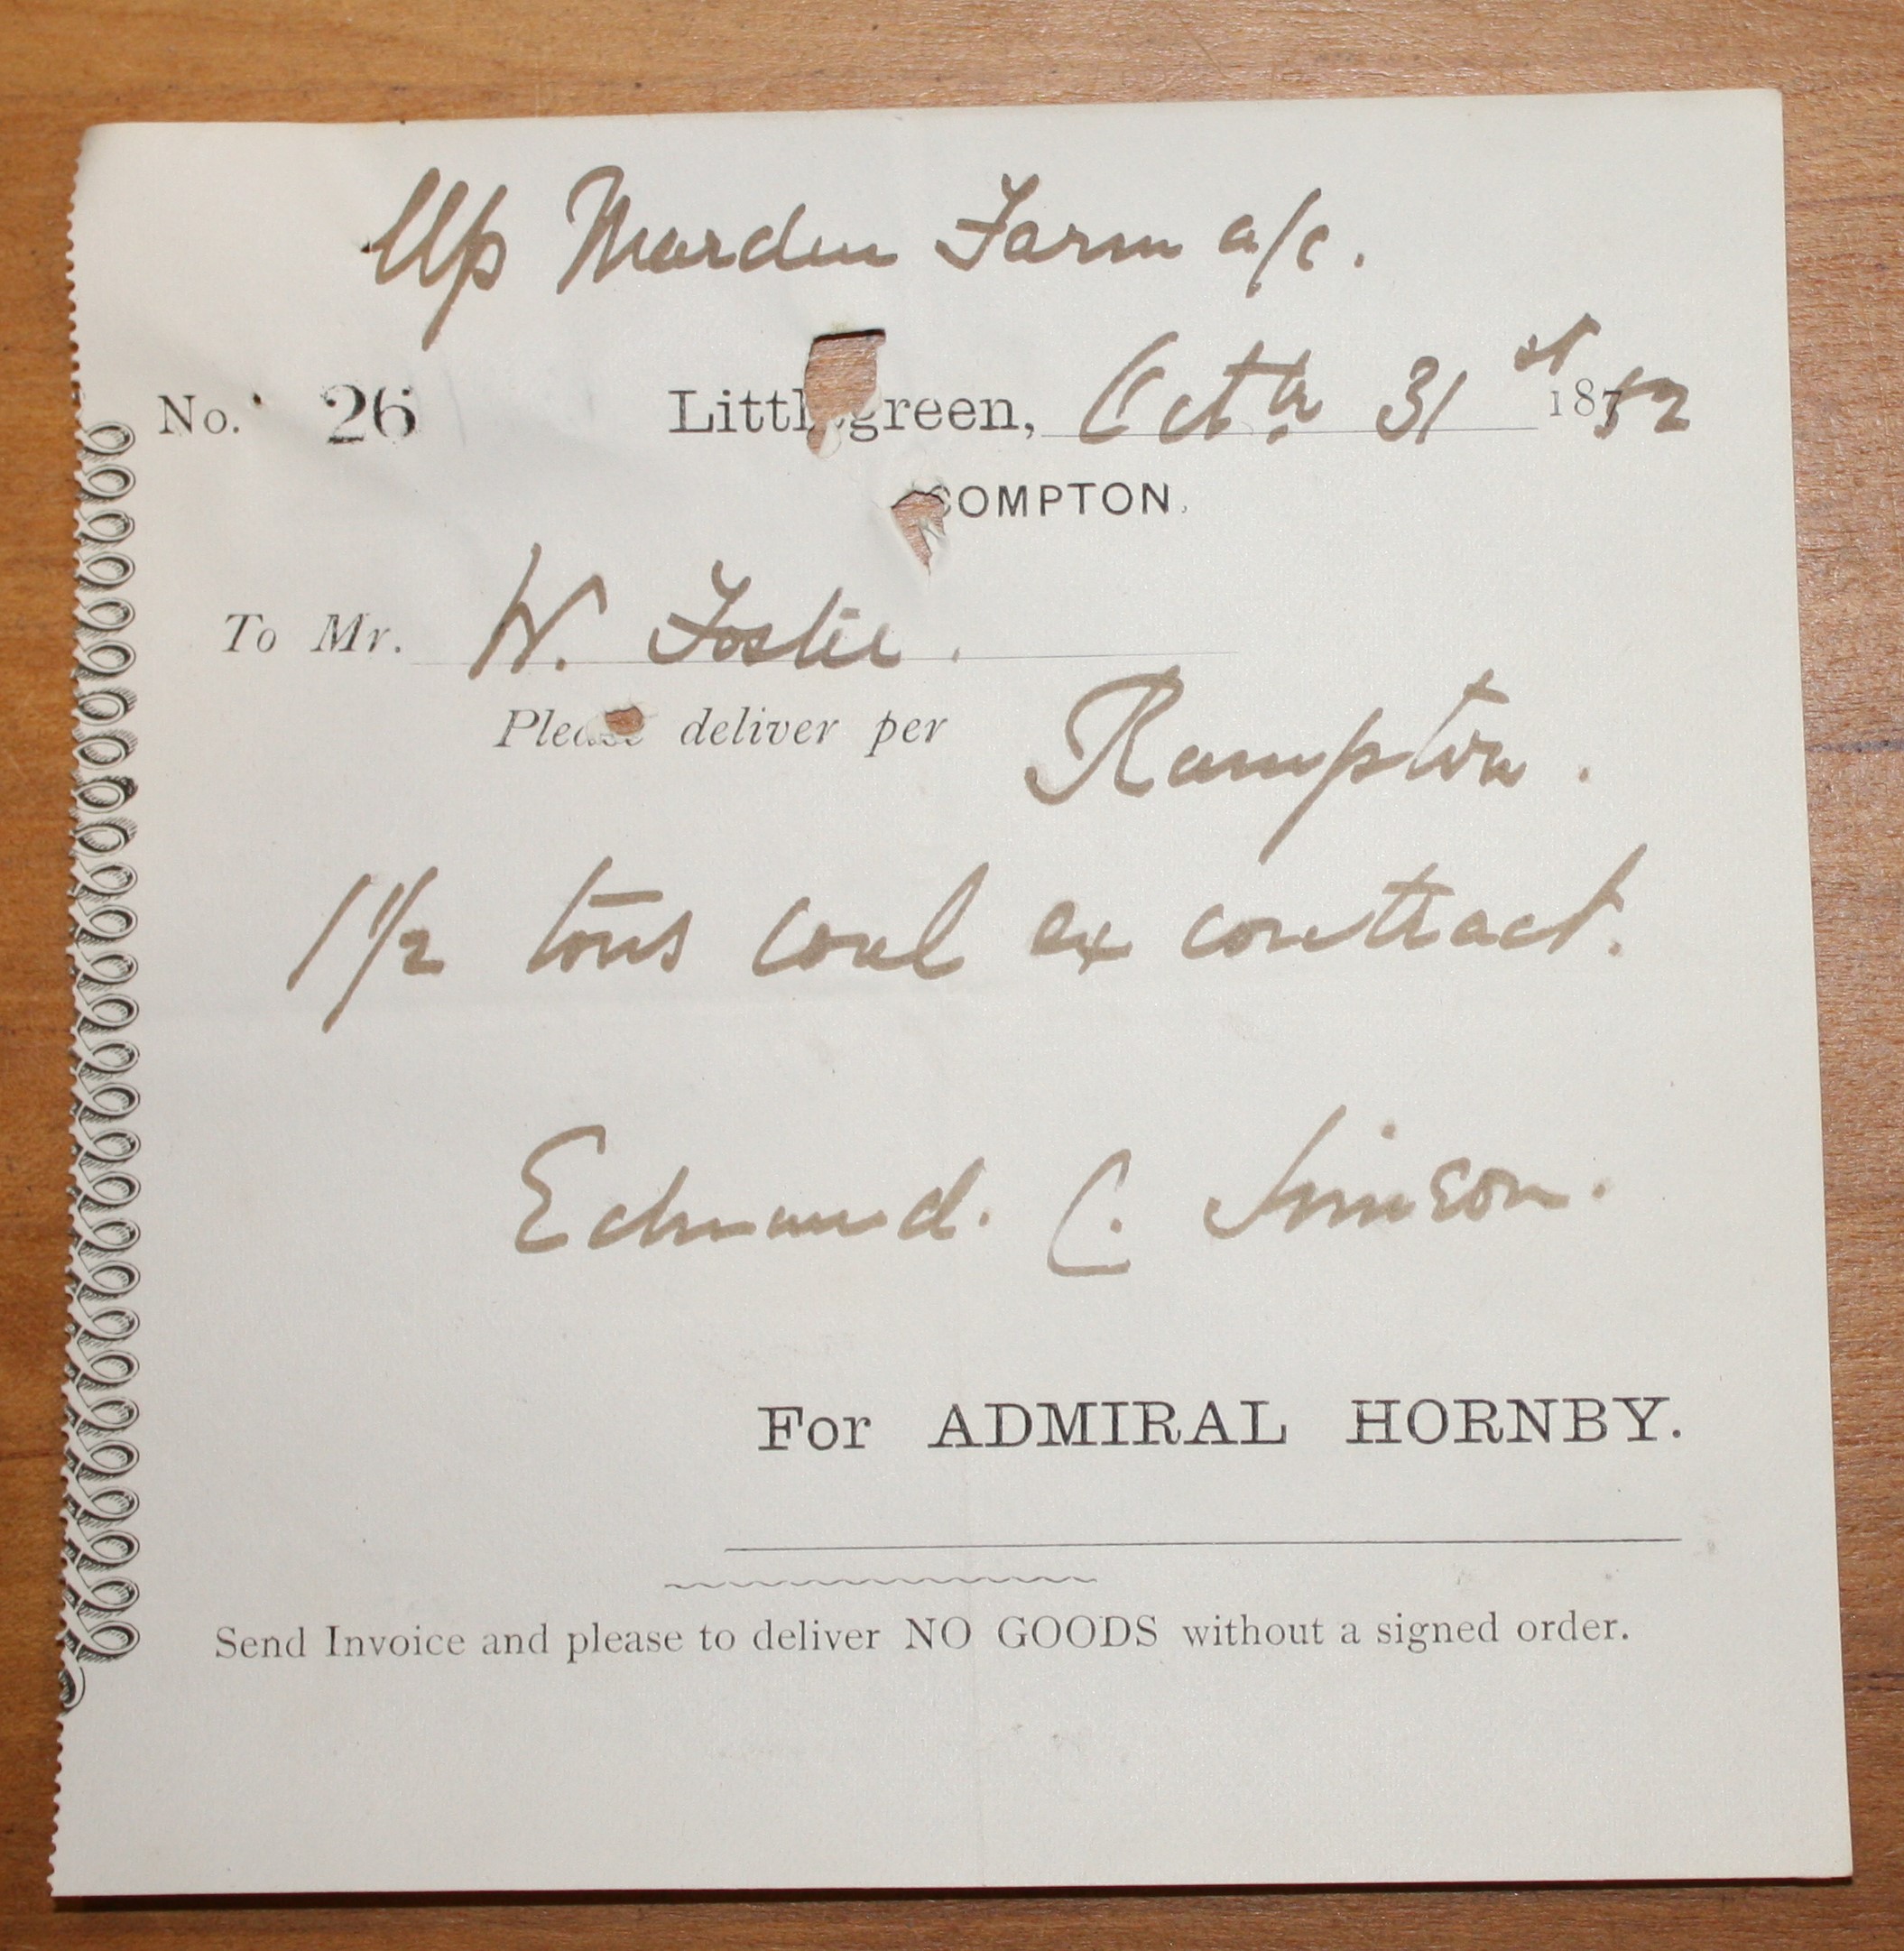 Up Marden Farm a/c.
No. 26 Littlegreen, Octr 31st 1882
COMPTON.
To Mr. W. Foster.
Please deliver per Rampton.
1 1/2 tons coal ex contract.
Edmund. C. Simson.
For ADMIRAL HORNBY.
Send Invoice and please to deliver NO GOODS without a signed order.